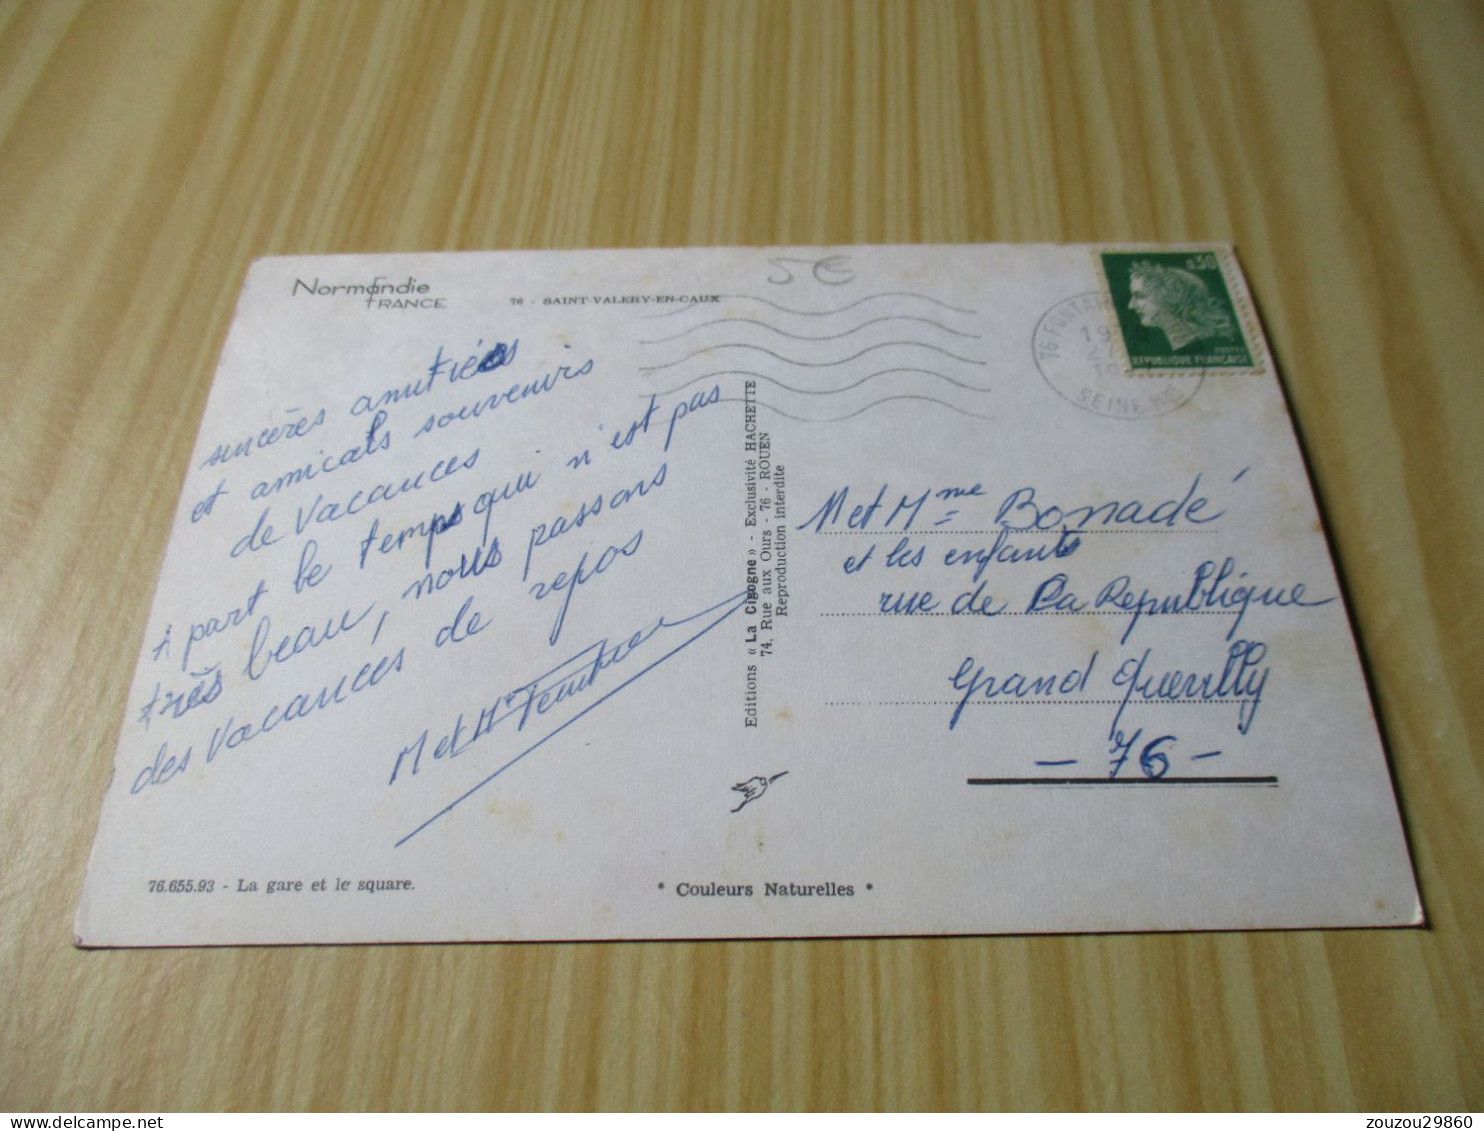 Normandie
FRANCE
76 - SAINT-VALERY-EN-CAUX
5€
sincères amitiés
et amicals souvenirs
de vacances
A part le temps qui n'est pas
très beau, nous passons
des vacances de repos
M et Mme
Editions « La Cigogne » - Exclusivité HACHETTE
74, Rue aux Ours - 76 - ROUEN
Reproduction interdite
0,30
POSTES
REPUBLIQUE FRANÇAISE
76 FONTAIN
SEINE ME
M et Mme Bonnadé
et les enfants
rue de La Republique
Grand Quevilly
- 76 -
76.655.93 - La gare et le square.
* Couleurs Naturelles *
zouzou29860